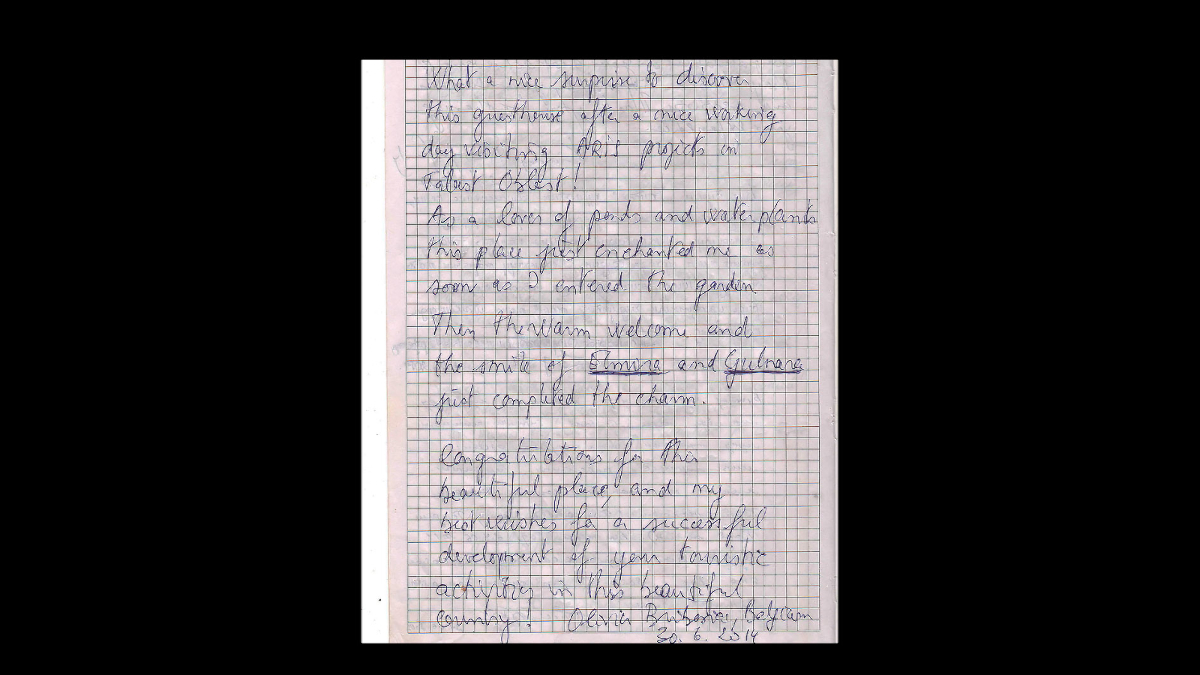 What a nice surprise to discover
this guesthouse after a nice working
day visiting ARIS projects in
Talas Oblast!
As a lover of ponds and waterplants
this place just enchanted me as
soon as I entered the garden.
Then the warm welcome and
the smile of Elmira and Gulnara
just completed the charm.
Congratulations for this
beautiful place, and my
best wishes for a successful
development of your touristic
activities in this beautiful
country! Belgium
30.6.2014